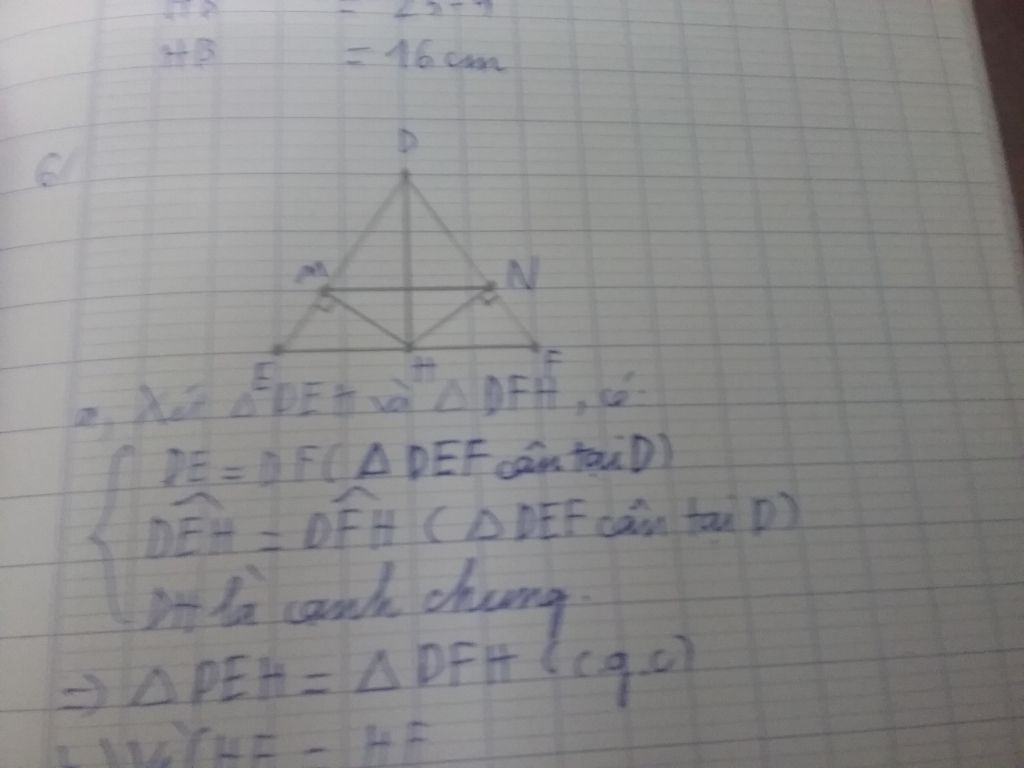 HB = 25-9
HB = 16 cm
6/
D
M
N
E
H
F
a, Xét △DEH và △DFH, có
DE = DF (△DEF cân tại D)
DEH = DFH (△DEF cân tại D)
DH là cạnh chung.
=> △DEH = △DFH (c.g.c)
HE = HF